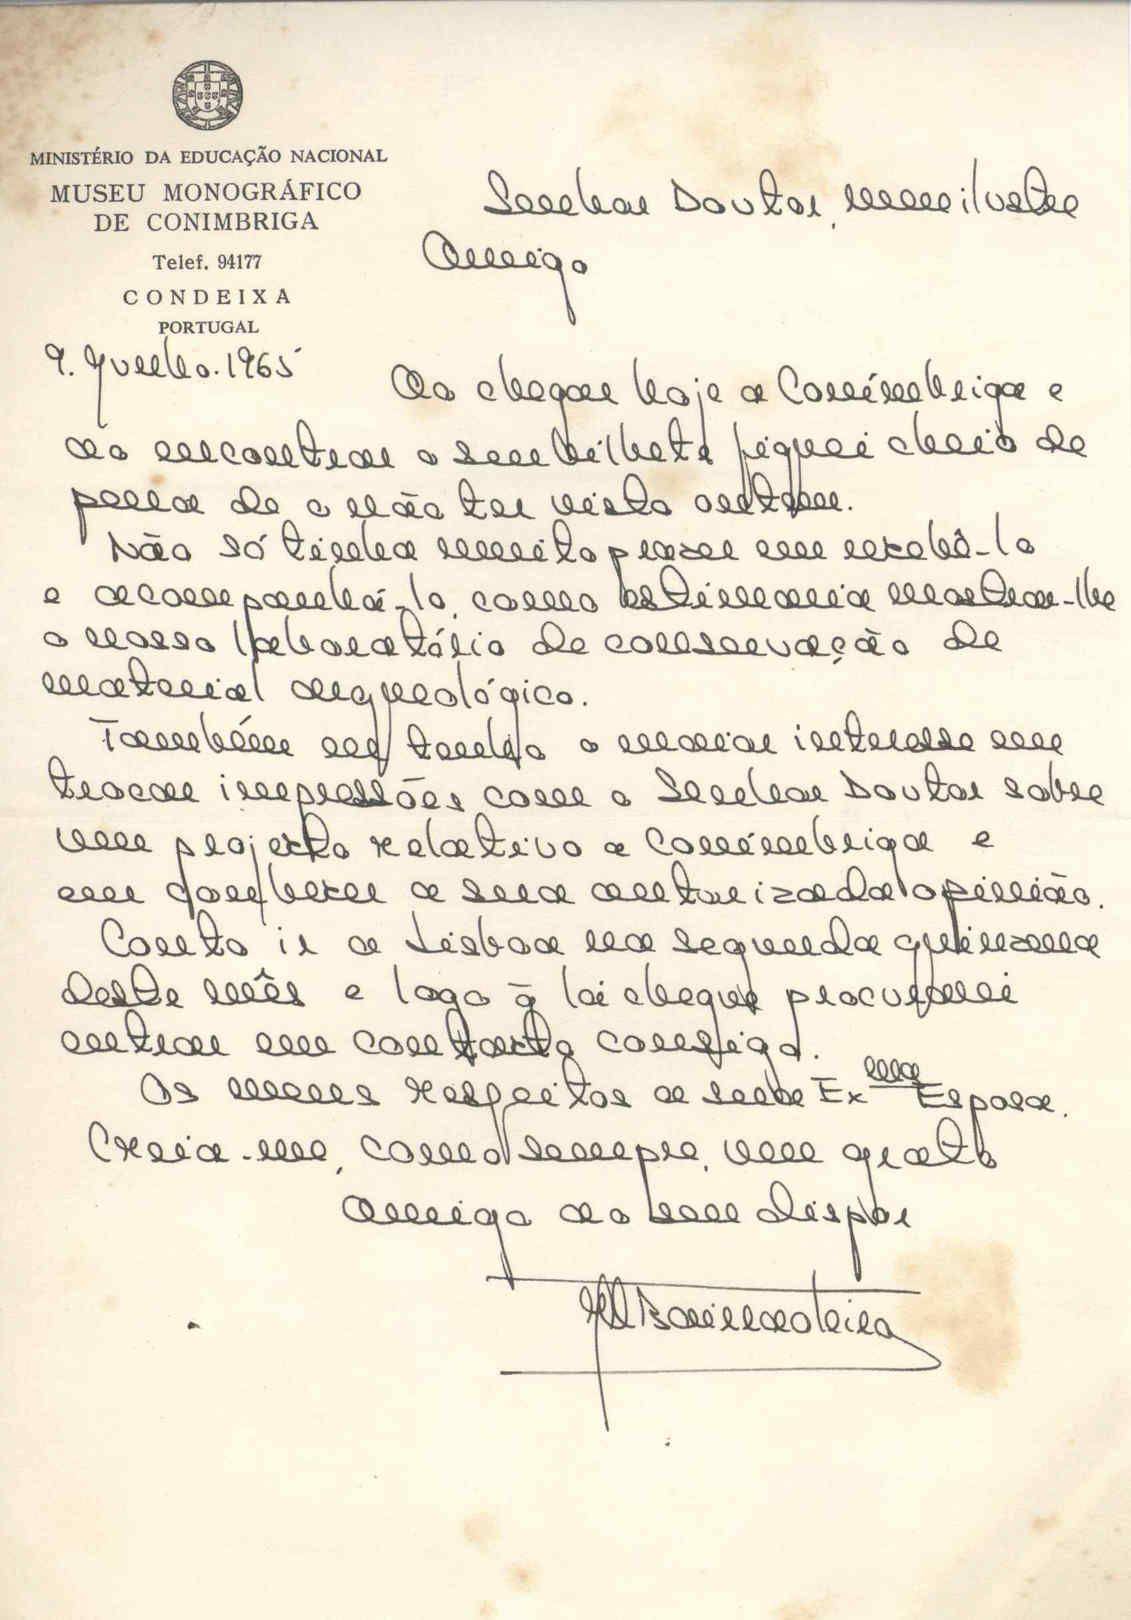 MINISTÉRIO DA EDUCAÇÃO NACIONAL
MUSEU MONOGRÁFICO
DE CONIMBRIGA
Telef. 94177
CONDEIXA
PORTUGAL
9. Junho. 1965
Senhor Doutor, meu ilustre
Amigo
Ao chegar hoje a Conímbriga e
ao encontrar o seu bilhete fiquei cheio de
pena de o não ter visto ontem.
Não só tinha muito prazer em recebê-lo
e acompanhá-lo, como estimaria mostrar-lhe
o nosso laboratório de conservação de
material arqueológico.
Também eu tenho o maior interesse em
trocar impressões com o Senhor Doutor sobre
um projecto relativo a Conímbriga e
em conhecer a sua autorizada opinião.
Conto ir a Lisboa na segunda quinzena
deste mês e logo q̃ lá chegue procurarei
entrar em contacto consigo.
Os meus respeitos a sua Exma Esposa.
Creia-me, como sempre, um grato
amigo ao seu dispor
Bairrão Oleiro